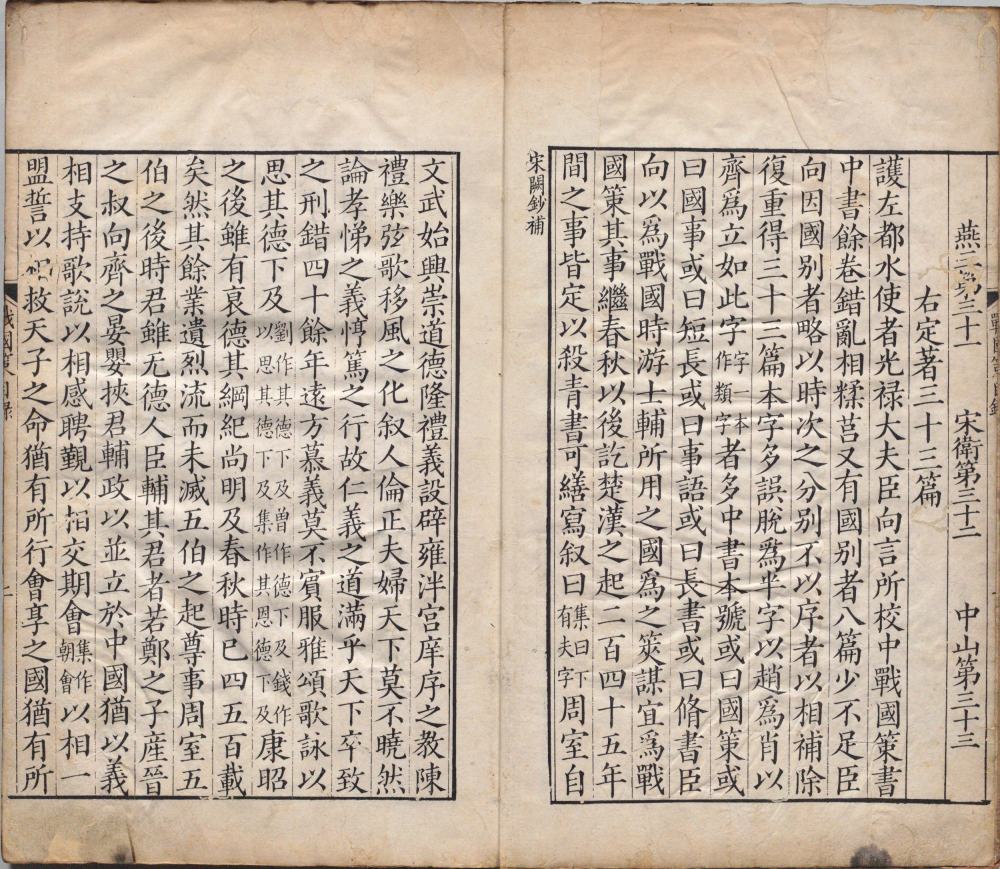 燕三第三十一　宋衛第三十二　中山第三十三
右定著三十三篇
護左都水使者光禄大夫臣向言所校中戰國策書
中書餘卷錯亂相糅莒又有國别者八篇少不足臣
向因國别者略以時次之分别不以序者以相補除
復重得三十三篇本字多誤脫爲半字以趙爲肖以
齊爲立如此字字一本作類字者多中書本號或曰國策或
曰國事或曰短長或曰事語或曰長書或曰脩書臣
向以爲戰國時游士輔所用之國爲之筴謀宜爲戰
國策其事繼春秋以後訖楚漢之起二百四十五年
間之事皆定以殺青書可繕寫叙曰集曰下有夫字周室自
宋闕鈔補
文武始興崇道德隆禮義設辟雍泮宫庠序之教陳
禮樂弦歌移風之化叙人倫正夫婦天下莫不曉然
論孝悌之義惇篤之行故仁義之道滿乎天下卒致
之刑錯四十餘年遠方慕義莫不賓服雅頌歌詠以
思其德下及劉作其德下及曾作德下及錢作以思其德下及集作其恩德下及康昭
之後雖有衰德其綱紀尚明及春秋時已四五百載
矣然其餘業遺烈流而未滅五伯之起尊事周室五
伯之後時君雖无德人臣輔其君者若鄭之子産晉
之叔向齊之晏嬰挾君輔政以並立於中國猶以義
相支持歌說以相感聘覲以相交期會集作朝會以相一
盟誓以相救天子之命猶有所行會享之國猶有所
戰國策目録